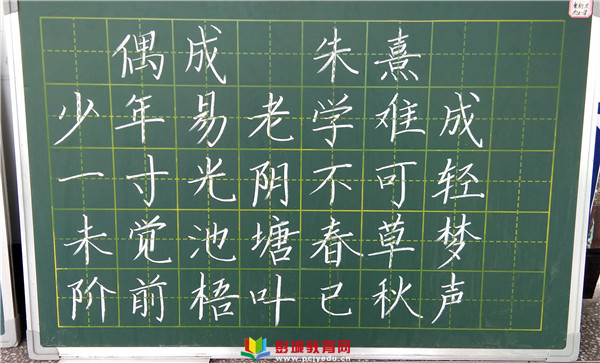 偶成 朱熹
少年易老学难成
一寸光阴不可轻
未觉池塘春草梦
阶前梧叶已秋声
彭城教育网
www.pcjyedu.cn